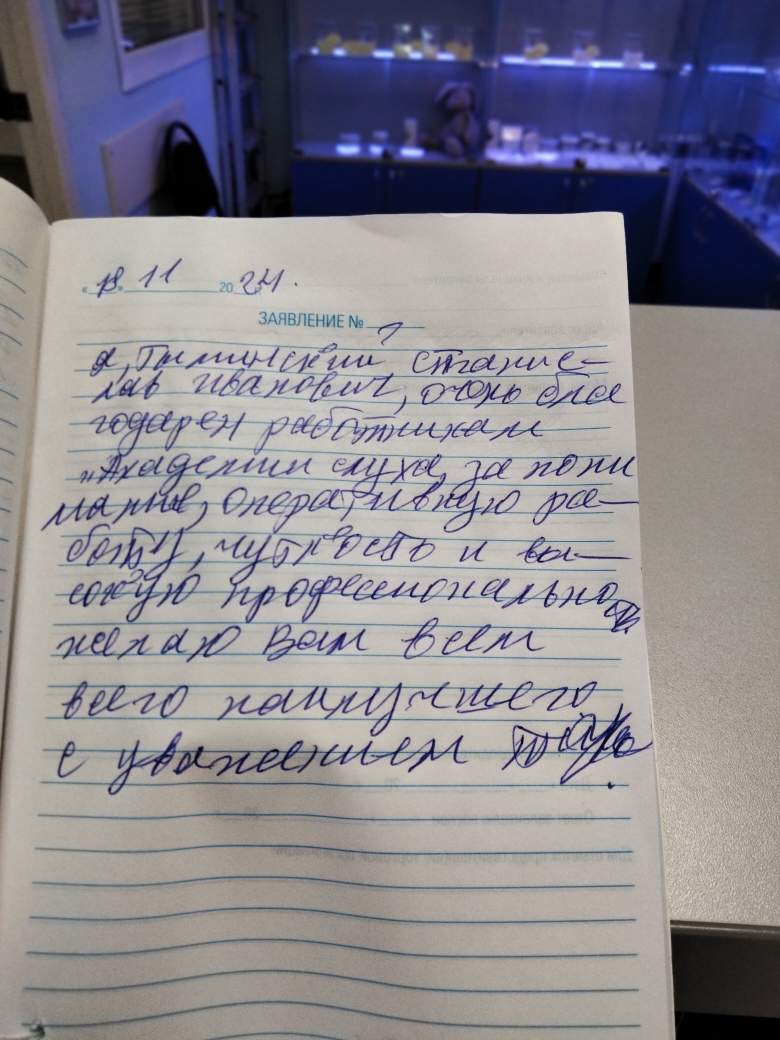 « 18 » 11 20 24.
ЗАЯВЛЕНИЕ №
я, Тылинский Станис-
лав Иванович, очень бла
годарен работникам
„Академии слуха, за пони
мание, оперативную ра-
боту, чуткость и вы-
сокую профессиональность.
желаю Вам всем
всего наилучшего
с уважением